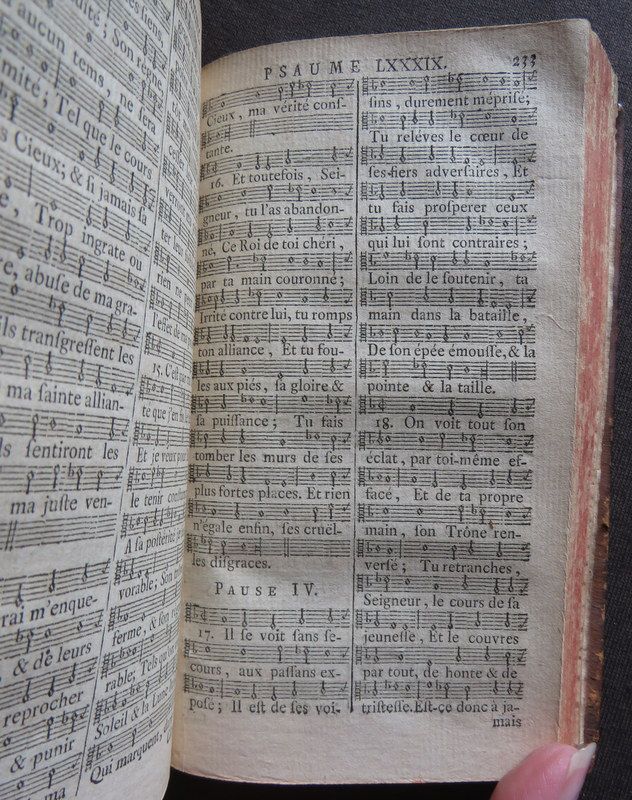 siens,
dité; Son règne
aucun tems, ne sera
mité; Tel que le cours
s Cieux; & si jamais sa
, Trop ingrate ou
re, abuse de ma gra-
ils transgressent les
ma sainte allian-
ls sentiront les
ma juste ven-
rai m'enque-
, & de leurs
reprocher
& punir
ma
rien ne
l'effet de
15. C'est
te que j'en
Et je veux
le tenir
A sa postérité
vorable; Son
ferme, & son
rable; Tels que
Soleil & la Lune
Qui marquent,
PSAUME LXXXIX. 233
Cieux, ma vérité conſ-
tante.
16. Et toutefois, Sei-
gneur, tu l'as abandon-
né, Ce Roi de toi chéri,
par ta main couronné;
Irrité contre lui, tu romps
ton alliance, Et tu fou-
les aux piés, ſa gloire &
ſa puiſſance; Tu fais
tomber les murs de ſes
plus fortes places. Et rien
n'égale enfin, ſes cruël-
les diſgraces.
PAUSE IV.
17. Il ſe voit ſans ſe-
cours, aux paſſans ex-
poſé; Il eſt de ſes voi-
ſins, durement mépriſé;
Tu reléves le cœur de
ſes fiers adverſaires, Et
tu fais proſperer ceux
qui lui ſont contraires;
Loin de le ſoutenir, ta
main dans la bataille,
De ſon épée émouſſe, & la
pointe & la taille.
18. On voit tout ſon
éclat, par toi-même ef-
facé, Et de ta propre
main, ſon Trône ren-
verſé; Tu retranches,
Seigneur, le cours de ſa
jeuneſſe, Et le couvres
par tout, de honte & de
triſteſſe. Eſt-ce donc à ja-
mais